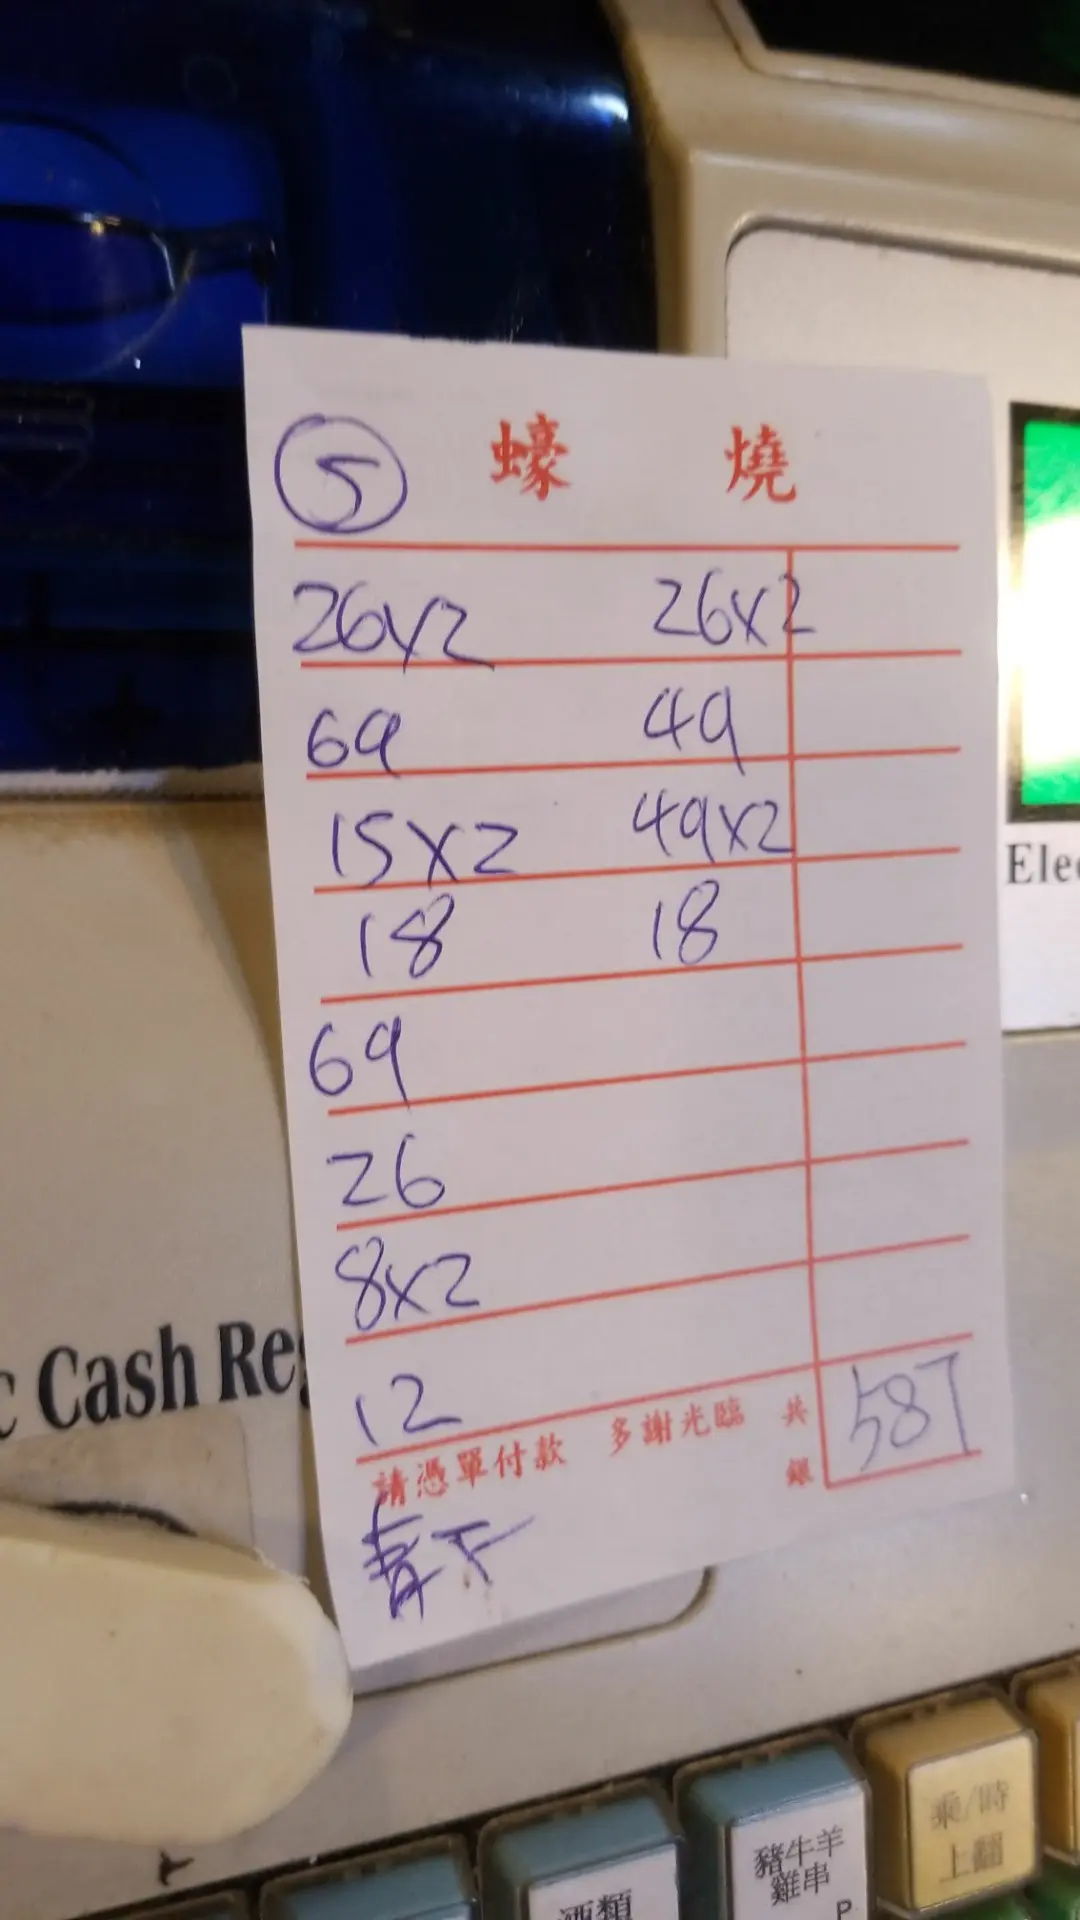 5 蠔 燒
26x2 26x2
69 49
15x2 49x2
18 18
69
26
8x2
12
請憑單付款 多謝光臨 共銀 587
Elec
c Cash Reg
乘/時
上翻
豬牛羊
雞串
P
酒類